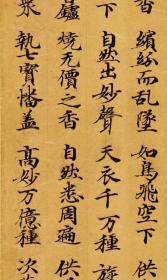 香 繽紛而乱墜 如鳥飛空下 供
下 自然出妙聲 天衣千万種 旋
鑪 燒无價之香 自然悉周遍 供
眾 執七寶幡盖 高妙万億種 次